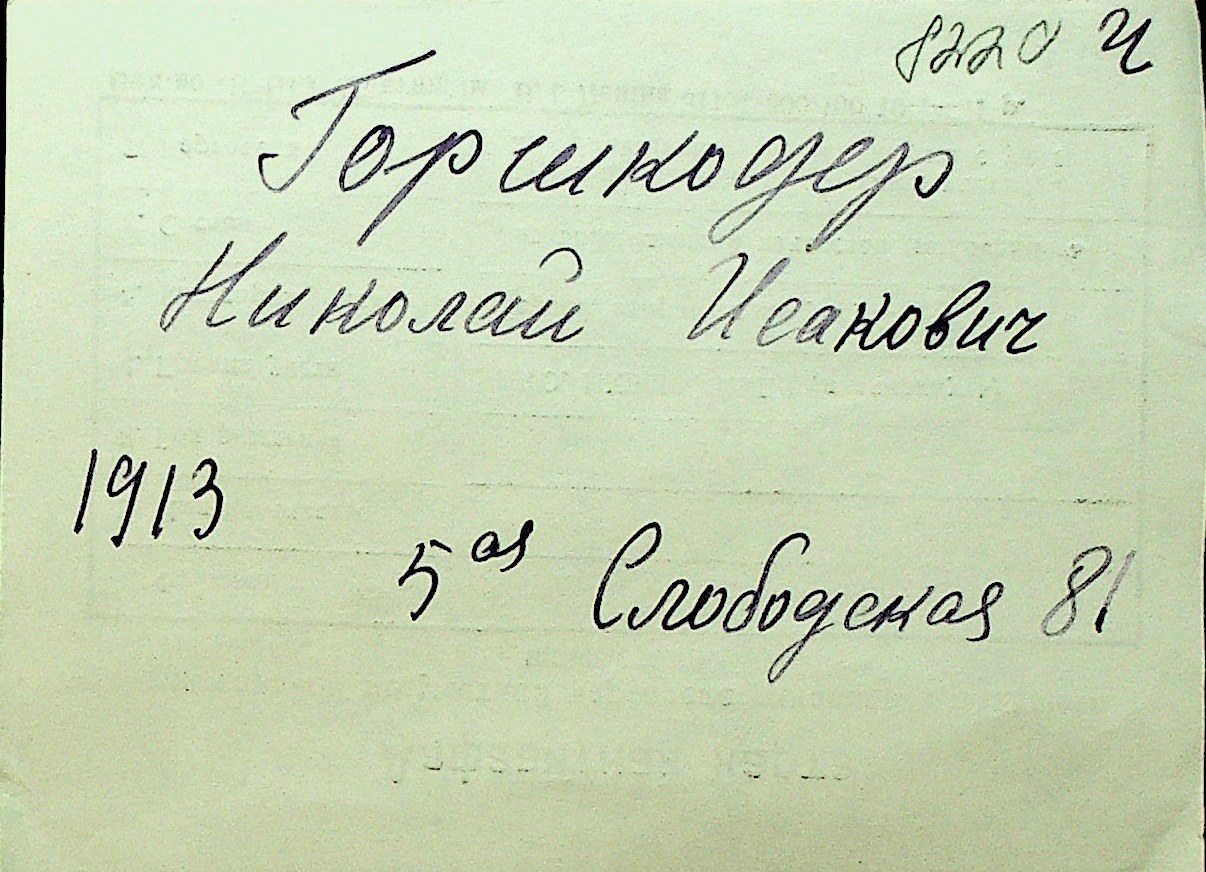 8220 Ч
Горшкодер
Николай Исакович
1913
5ая Слободская 81